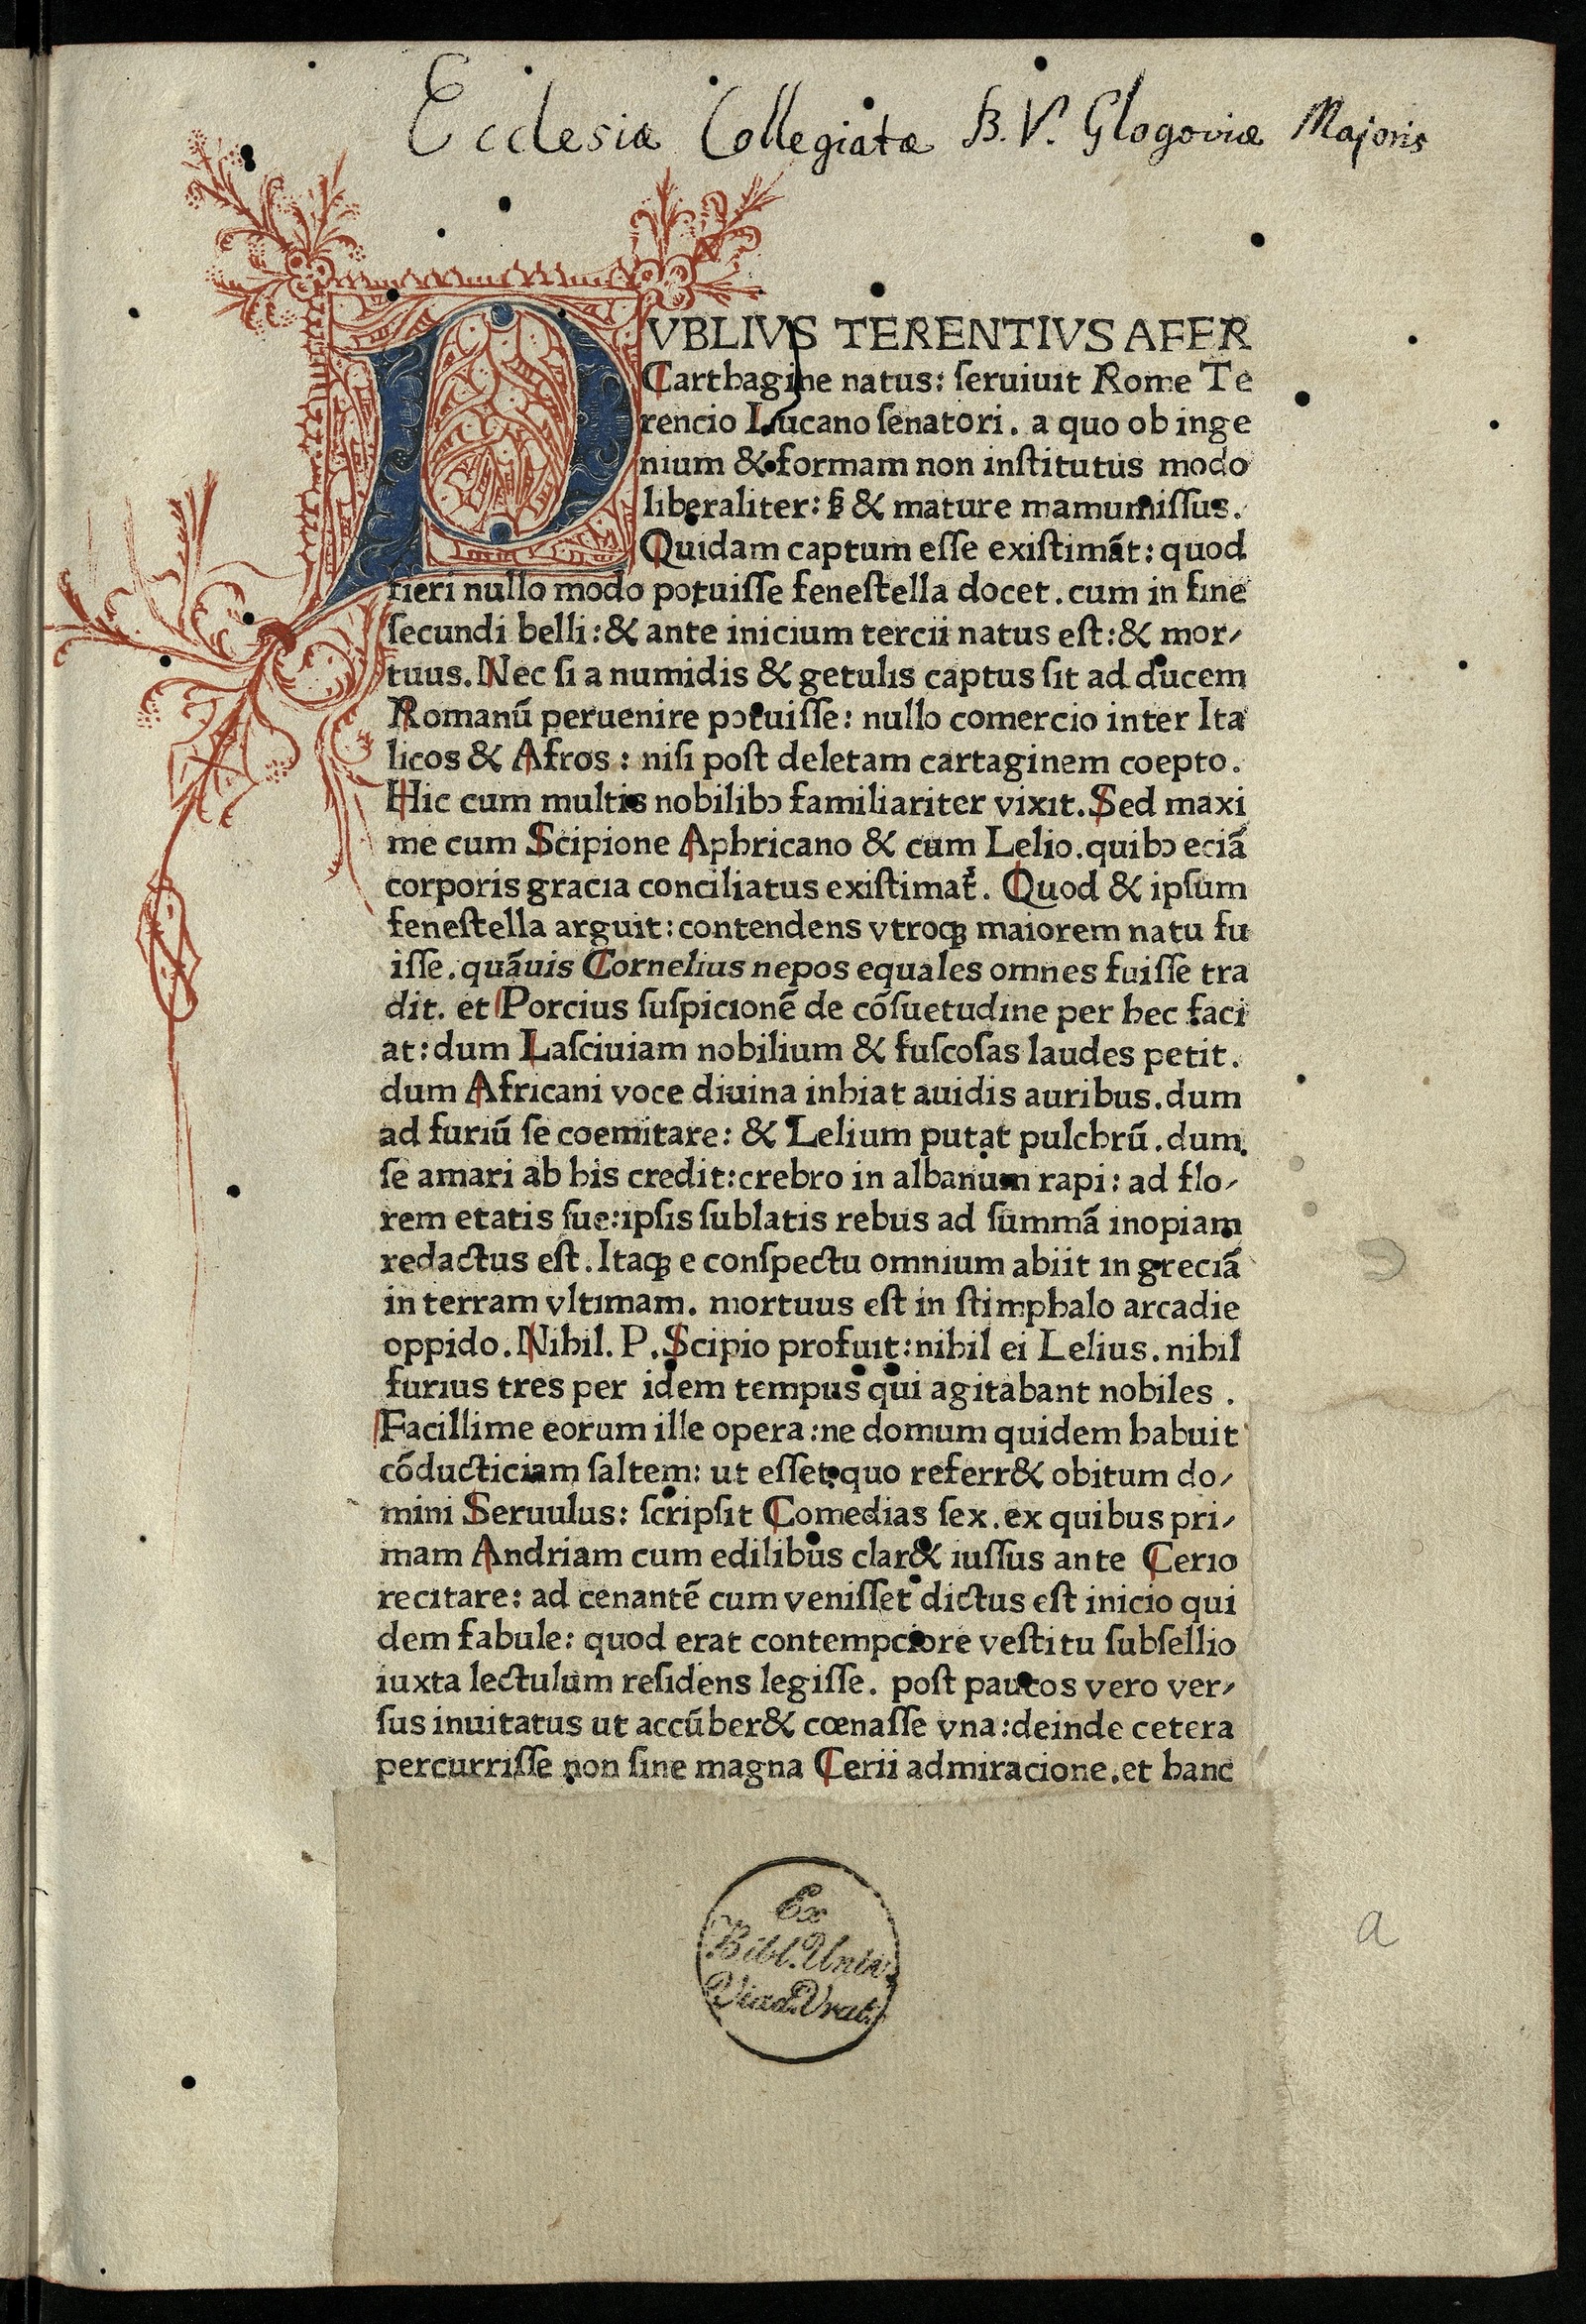 Ecclesiæ Collegiatæ B. V. Glogoviæ Majoris
PVBLIVS TERENTIVS AFER
Carthagine natus: ſeruiuit Rome Te
rencio Lucano ſenatori. a quo ob inge
nium & formam non inſtitutus modo
liberaliter: ꝸ & mature mamumiſſus.
Quidam captum eſſe exiſtimāt: quod
fieri nullo modo potuiſſe feneſtella docet. cum in fine
ſecundi belli: & ante inicium tercii natus eſt: & mor⸗
tuus. Nec ſi a numidis & getulis captus ſit ad ducem
Romanū peruenire potuiſſe: nullo comercio inter Ita
licos & Afros : niſi poſt deletam cartaginem coepto.
Hic cum multis nobilibꝰ familiariter vixit. Sed maxi
me cum Scipione Aphricano & cum Lelio. quibꝰ eciā
corporis gracia conciliatus exiſtimat᷑. Quod & ipſum
feneſtella arguit: contendens vtroqꝫ maiorem natu fu
iſſe. quāuis Cornelius nepos equales omnes fuiſſe tra
dit. et Porcius ſuſpicionē de cōſuetudine per hec faci
at: dum Laſciuiam nobilium & fuſcoſas laudes petit.
dum Africani voce diuina inhiat auidis auribus. dum
ad furiū ſe coemitare: & Lelium putat pulchrū. dum
ſe amari ab his credit: crebro in albanum rapi: ad flo⸗
rem etatis ſue: ipſis ſublatis rebus ad ſummā inopiam
redactus eſt. Itaqꝫ e conſpectu omnium abiit in greciā
in terram vltimam. mortuus eſt in ſtimphalo arcadie
oppido. Nihil. P. Scipio profuit: nihil ei Lelius. nihil
furius tres per idem tempus qui agitabant nobiles .
Facillime eorum ille opera: ne domum quidem habuit
cōducticiam ſaltem: ut eſſet quo referr& obitum do⸗
mini Seruulus: ſcripſit Comedias ſex. ex quibus pri⸗
mam Andriam cum edilibus clar& iuſſus ante Cerio
recitare: ad cenantē cum veniſſet dictus eſt inicio qui
dem fabule: quod erat contempciore veſtitu ſubſellio
iuxta lectulum reſidens legiſſe. poſt paucos vero ver⸗
ſus inuitatus ut accūber& cœnaſſe vna: deinde cetera
percurriſſe non ſine magna Cerii admiracione. et hanc
Ex
Bibl. Univ.
Viad. Vrat.
a